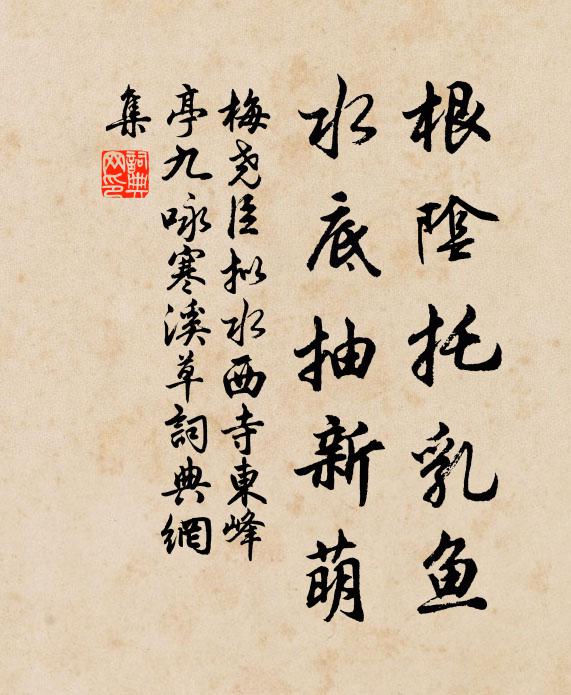 根陰托乳鱼
水底抽新萌
梅尧臣拟水西寺東峰
亭九咏寒溪草詞典網
集
詞典
网印